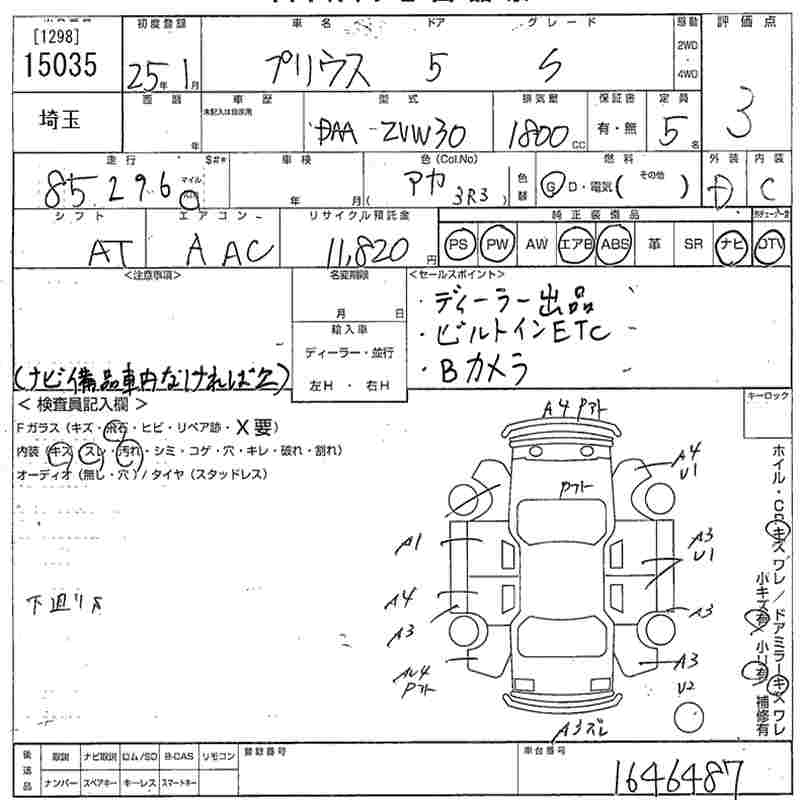 [1298]
15035
初度登録
25年1月
車名
プリウス
ドア
5
グレード
S
駆動
2WD
4WD
評価点
3
埼玉
西暦
年
車歴
未記入は自家用
型式
DAA-ZVW30
排気量
1800 CC
保証書
有・無
定員
5名
走行
85296
マイル
$#*
車検
年 月
色(Col.No)
アカ
(3R3)
色替
燃料
G D・電気( その他 )
外装
D
内装
C
シフト
AT
エアコン
AAC
リサイクル預託金
11,820円
純正装備品
PS PW AW エアB ABS 革 SR ナビ DTV
<注意事項>
(ナビ備品車内なければ欠)
名変期限
月 日
輸入車
ディーラー・並行
左H・右H
<セールスポイント>
・ディーラー出品
・ビルトインETC
・Bカメラ
<検査員記入欄>
Fガラス(キズ・飛石・ヒビ・リペア跡・X要)
内装(キズ・スレ・汚れ・シミ・コゲ・穴・キレ・破れ・割れ)
オーディオ(無し・穴)/タイヤ(スタッドレス)
下廻りS
キーロック
A4 アト
アト
A4
U1
A1
A3
U1
A4
A3
A3
アト
A3
U2
A3ズレ
ホイル・CPキズワレ/ドアミラーキズワレ
小キズ有 小凹有 補修有
後送品
取説 ナビ取説 ロム/SD B-CAS リモコン
ナンバー スペアキー キーレス スマートキー
登録番号
車台番号
1646487